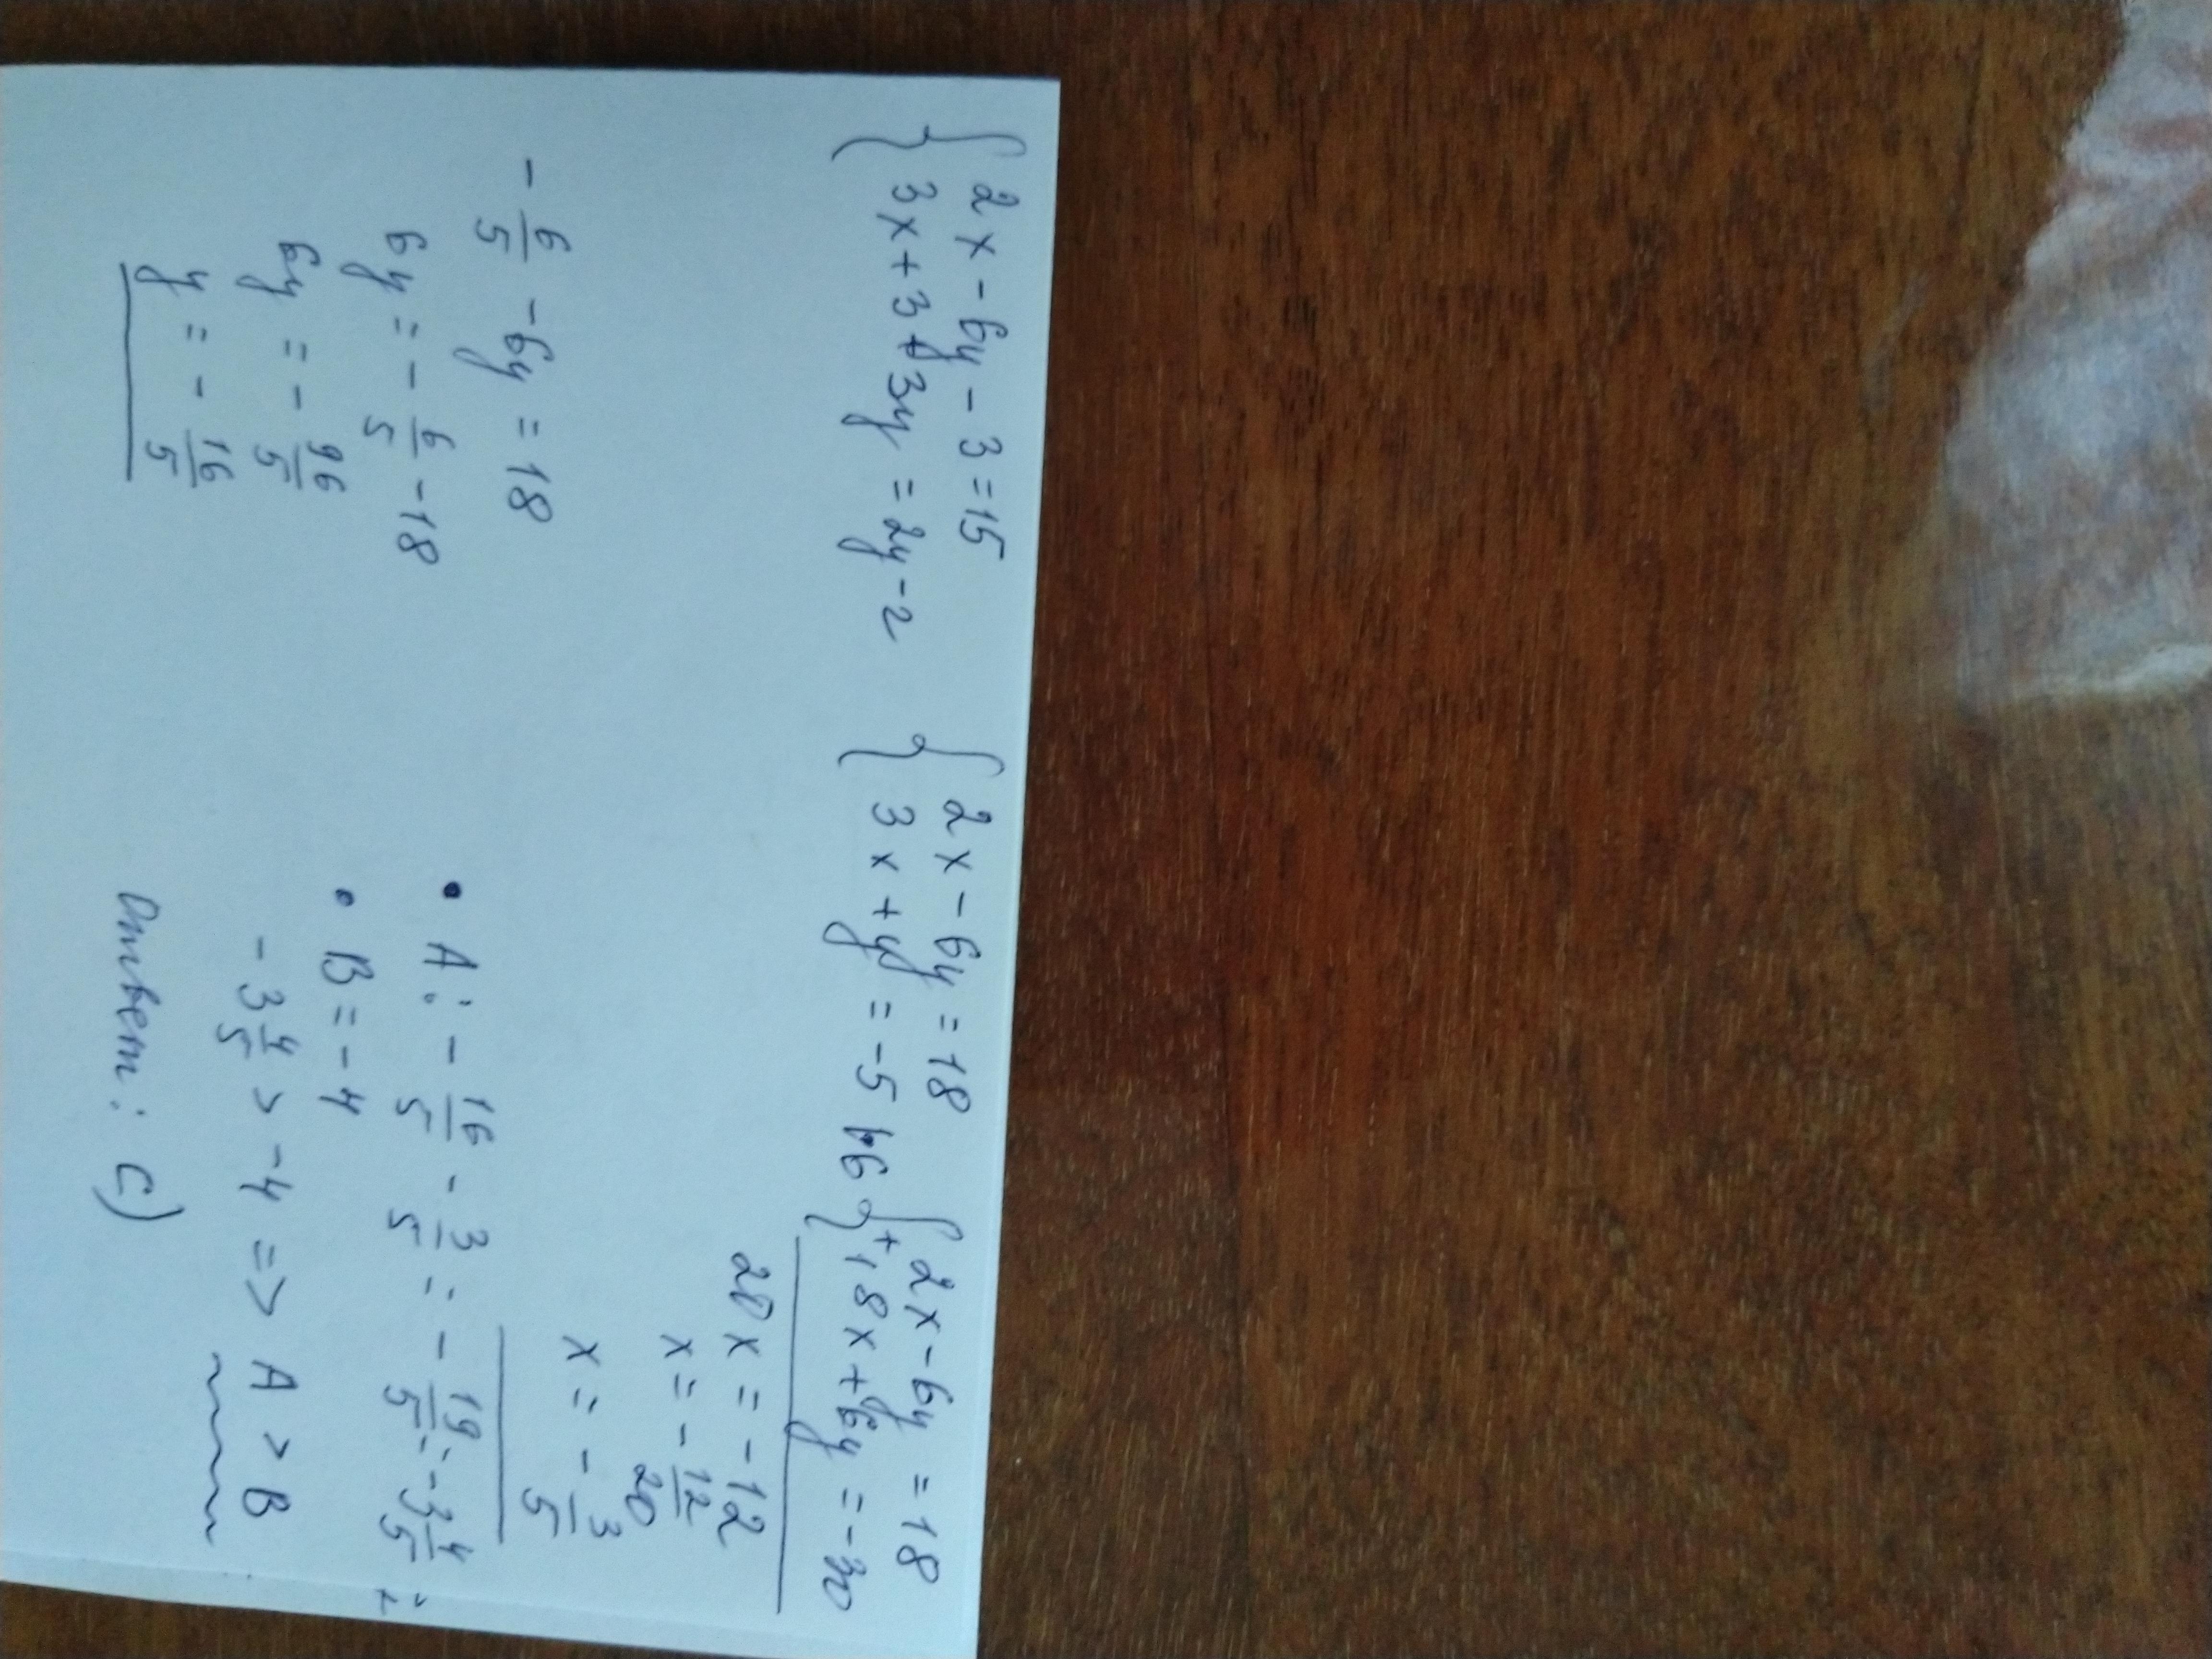 { 2x - 6y - 3 = 15
3x + 3 + 3y = 2y - 2
{ 2x - 6y = 18
3x + y = -5 |·6
{ 2x - 6y = 18
+ 18x + 6y = -30
20x = -12
x = - 12/20
x = - 3/5
- 6/5 - 6y = 18
6y = - 6/5 - 18
6y = - 96/5
y = - 16/5
• A: - 16/5 - 3/5 = - 19/5 = -3 4/5
• B = -4
-3 4/5 > -4 => A > B
Ответ: C)